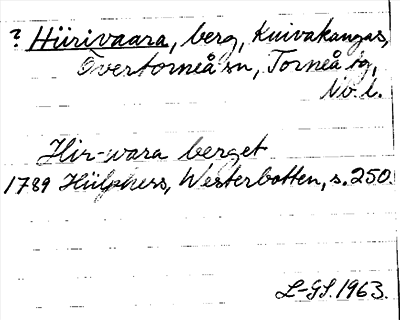 ? Hiirivaara, berg, Kuivakangas,
Övertorneå sn, Torneå tg,
Nb. l.
Hir-wara berget
1789 Hülphers, Westerbotten, s. 250.
L-GS. 1963.